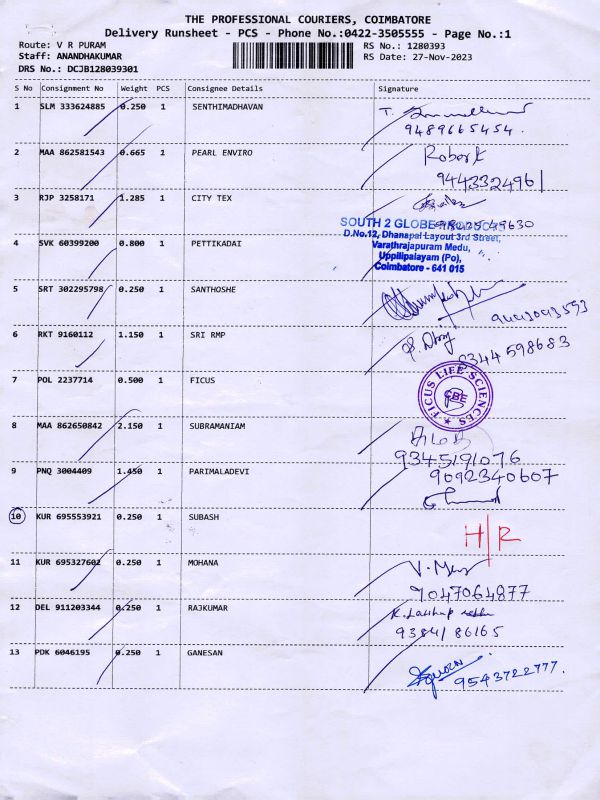 THE PROFESSIONAL COURIERS, COIMBATORE
Delivery Runsheet - PCS - Phone No.:0422-3505555 - Page No.:1
Route: V R PURAM RS No.: 1280393
Staff: ANANDHAKUMAR RS Date: 27-Nov-2023
DRS No.: DCJB128039301
S No Consignment No Weight PCS Consignee Details Signature
1 SLM 333624885 0.250 1 SENTHIMADHAVAN
9489665454.
2 MAA 862581543 0.665 1 PEARL ENVIRO Robert
9443324961
3 RJP 3258171 1.285 1 CITY TEX
SOUTH 2 GLOBE
D.No.12, Dhanapal Layout 3rd Street,
4 SVK 60399200 0.800 1 PETTIKADAI Varathrajapuram Medu,
Uppilipalayam (Po),
Coimbatore - 641 015
5 SRT 302295798 0.250 1 SANTHOSHE
9443093593
6 RKT 9160112 1.150 1 SRI RMP
9344598683
7 POL 2237714 0.500 1 FICUS FICUS LIFE SCIENCES
CBE
8 MAA 862650842 2.150 1 SUBRAMANIAM
9345191076
9 PNQ 3004409 1.450 1 PARIMALADEVI 9092340607
10 KUR 695553921 0.250 1 SUBASH H/R
11 KUR 695327602 0.250 1 MOHANA
9047064877
12 DEL 911203344 0.250 1 RAJKUMAR
9384186165
13 PDK 6046195 0.250 1 GANESAN
9543722777.